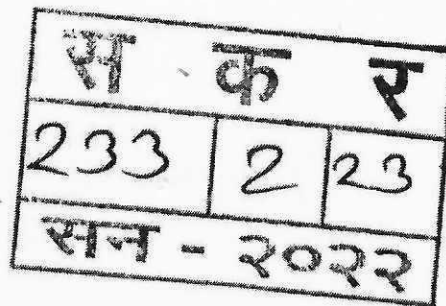 स क र
233 2 23
सन - २०२२